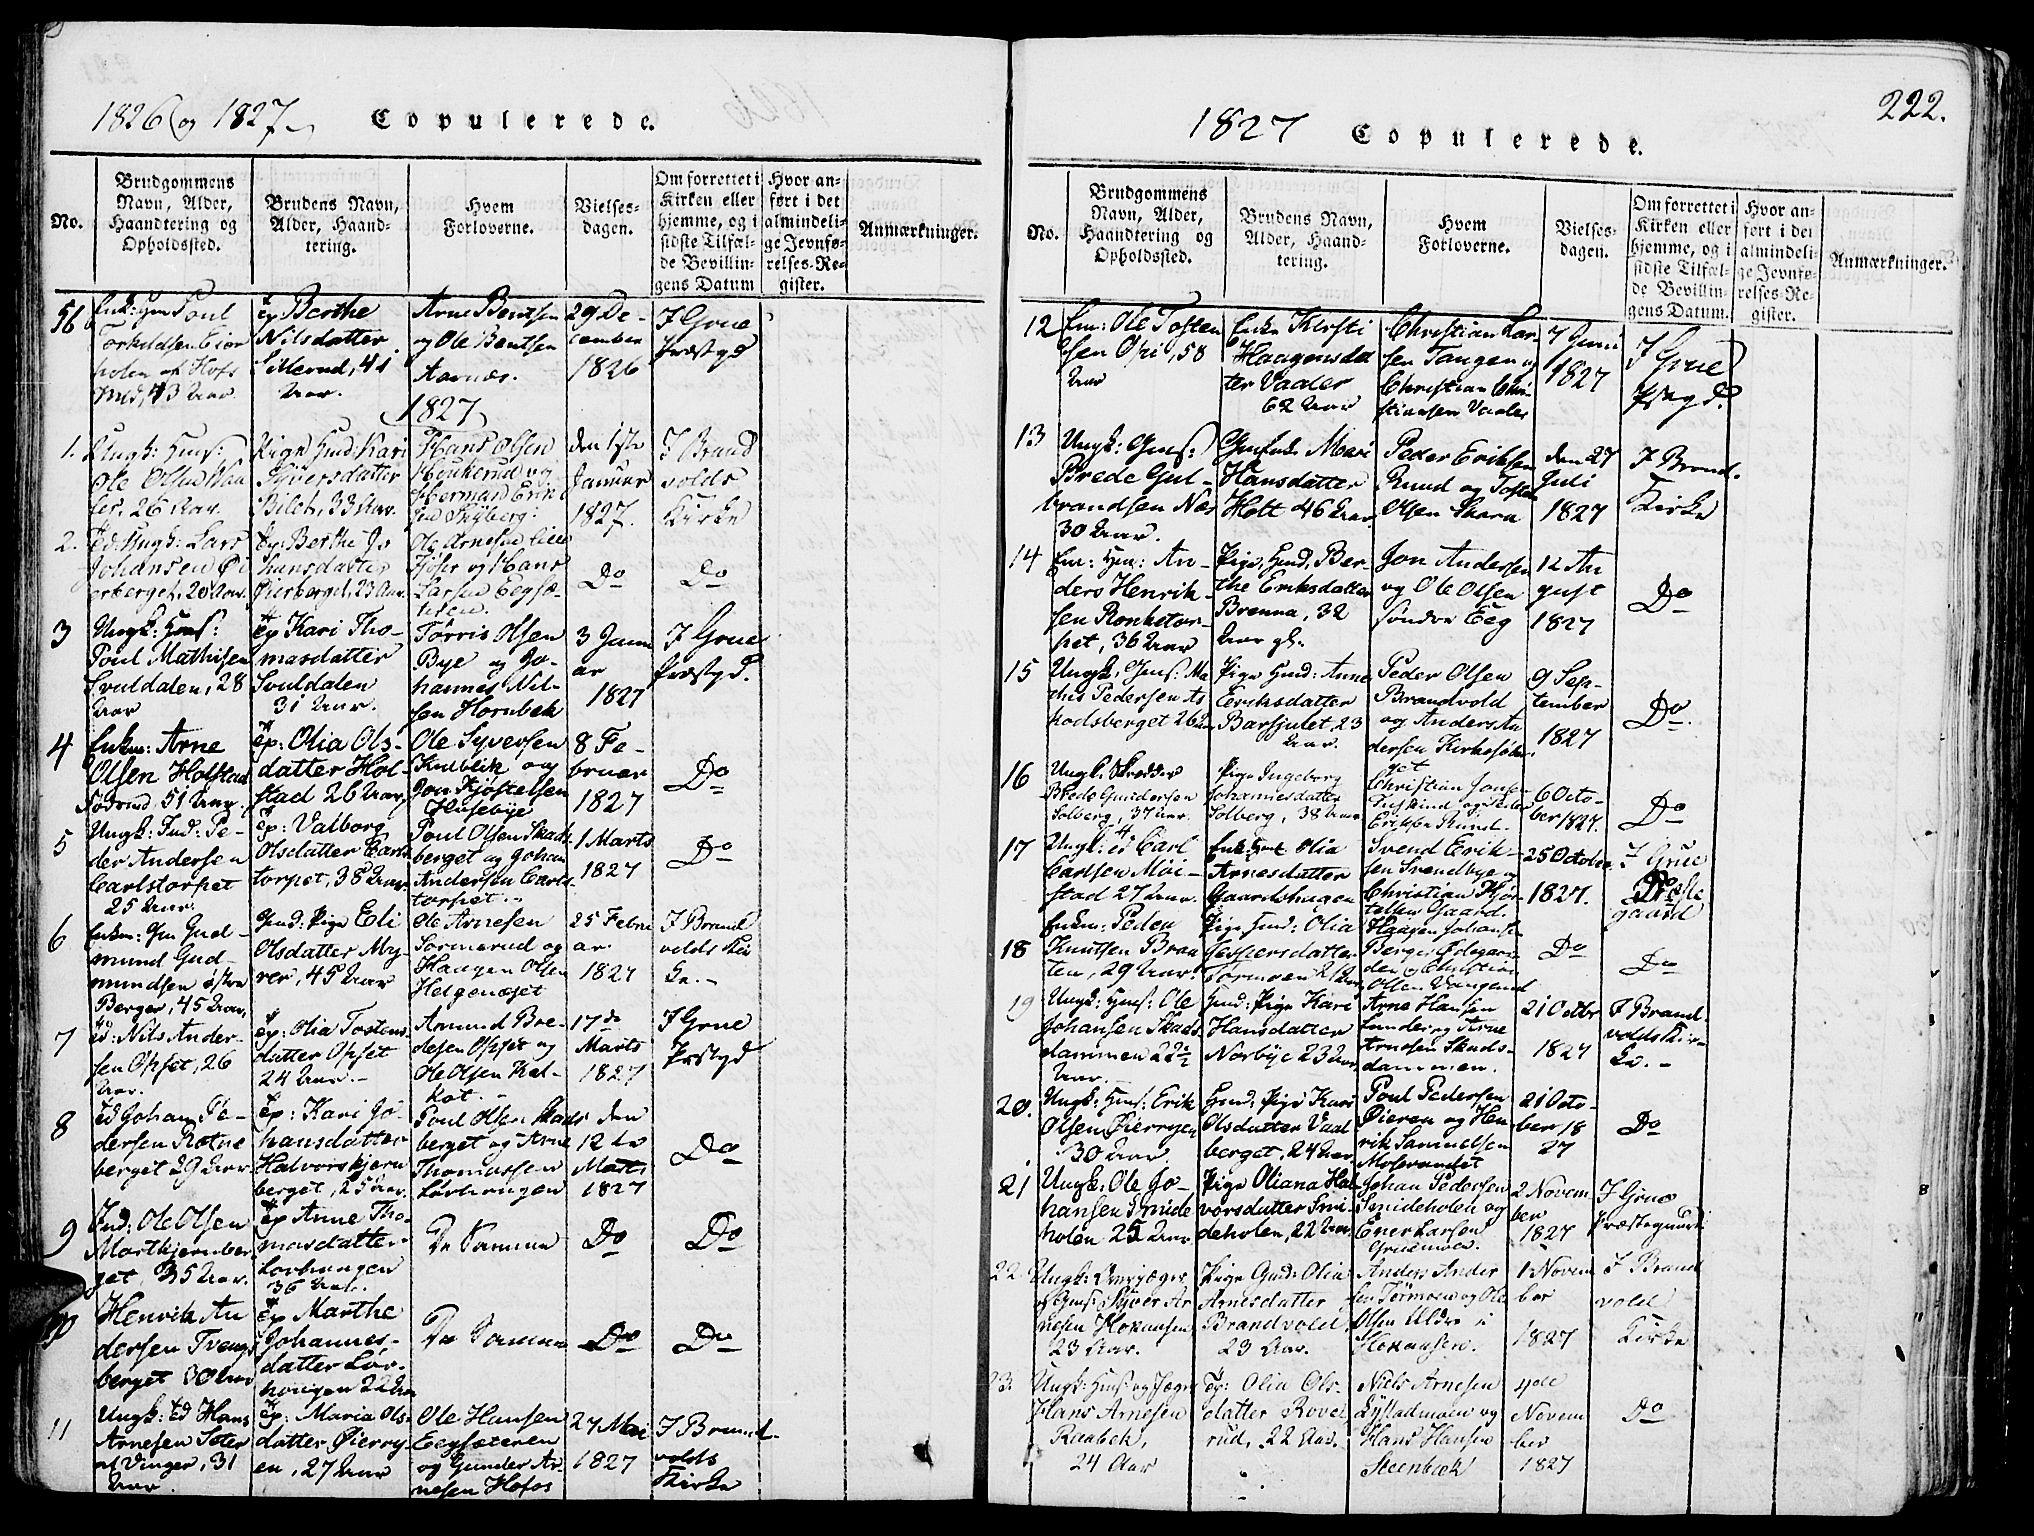 1826 og 1827
Copulerede.
No.
Brudgommens Navn, Alder, Haandtering og Opholdssted.
Brudens Navn, Alder, Haandtering.
Hvem Forloverne.
Vielsesdagen.
Om forrettet i Kirken eller hjemme, og i sidste Tilfælde Bevillingens Datum
Hvor anført i det almindelige Jevnførelses-Register.
Anmærkninger.
56
Poul
holen af Hofs
43 Aar.
Ep Berthe
Nilsdatter
Silerud, 41
Aar.
Arne Bentsen
og Ole Bentsen
Aarnæs.
29 De-
cember
1826
I Grue
Præstgd
1827
1.
Ungk: Hms:
Ole Olsen
26 Aar.
Pige Hmd: Kari
Syversdatter
33 Aar.
Hans Olsen
og
Herman
den 1ste
Januar
1827.
I Brand
volds
Kirke
2.
Ungk: Lars
Johansen
Ep: Berthe Jo
hansdatter
23 Aar.
Ole Arnesen
og Hans
Larsen Eegsæ-
teren.
Do
Do
3
Ungk: Hms:
Poul Mathisen
Svuldalen, 28
Aar
Ep Kari Tho-
masdatter
Svuldalen
31 Aar.
Tørris Olsen
Bye og Jo-
hannes Nil-
sen Hornbek
3 Janu
ar
1827
I Grue
Præstgd.
4
Enkm: Arne
Olsen Holstad
51 Aar.
Ep: Olia Ols-
datter Hol-
stad 26 Aar,
Ole Syversen
Kulblik og
Jon Kjøstelsen
Husebye
8 Fe-
bruar
1827
Do
5
Ungk: Ind: Pe-
der Andersen
Carlstorpet
25 Aar.
Ep: Valborg
Olsdatter Carls
torpet, 38 Aar.
Poul Olsen Skads
berget og Johan
Andersen Carls-
torpet.
1 Marts
1827
Do
6
Enkm: Gm Gud-
mund Gud-
mundsen østre
Berger, 45 Aar,
Gmd: Pige Eli
Olsdatter My-
rer, 45 Aar
Ole Arnesen
Sormerud og
Haagen Olsen
Helgenæset
25 Febru
ar.
1827
I Brand
volds Kir
ke.
7
Ed: Nils Ander-
sen Opset, 26
Aar.
Ep: Olia Tostens
datter Opset
24 Aar.
Amund Bre-
desen Opset og
Ole Olsen Kal-
kot.
17de
Marts
1827
I Grue
Prstgd
8
Ed Johan Pe-
dersen Rotne
berget 29 Aar
Ep: Kari Jo-
hansdatter
Halvorskjern
berget, 25 Aar.
Poul Olsen Skads
berget og Arne
Thomassen
Lørhougen
den
12te
Marts
1827
Do
9
Ind: Ole Olsen
Mortkjernber
get, 35 Aar.
Ep Anne Tho-
masdatter
Lørhougen
36 Aar.
De Samme
Do
Do
10
Henrik An
dersen Tvengs
berget 30 Aar
Ep Marthe
Johannes-
datter Lør-
hougen 22 Aar
De Samme
Do
Do
11
Ungk: Ed Hans
Arnesen Seter
af Vinger, 31
Aar.
Ep: Maria Ols-
datter Øierry-
en, 27 Aar
Ole Hansen
Eegsæteren
og Gunder Ar-
nesen Hofos
27 Mai
1827
I Brand-
volds
Kirke
222.
1827
Copulerede.
No.
Brudgommens Navn, Alder, Haandtering og Opholdssted.
Brudens Navn, Alder, Haandtering.
Hvem Forloverne.
Vielsesdagen.
Om forrettet i Kirken eller hjemme, og i sidste Tilfælde Bevillingens Datum.
Hvor anført i det almindelige Jevnførelses-Register.
Anmærkninger.
12
Em: Ole Tosten
sen Opi, 58
Aar
Enke Kersti
Haagensdat
ter Vaaler
62 Aar
Christian Lar-
sen Tangen og
Christian Chri-
stiansen Vaaler
7 Juni
1827
I Grue
Pstgd.
13
Ungk: Gms:
Brede Gul-
brandsen Næs
30 Aar.
Mari
Hansdatter
Hott 46 Aar
Peder Eriksen
Ruud og Tosten
Olsen
den 27
Juli
1827
I Brand.
Kirke
14
Em: Hm: An-
ders Henrik-
sen Ronketor-
pet, 36 Aar
Pige, Hmd, Ber-
the Eriksdatter
Brenna, 32
Aar gl.
Jon Andersen
og Ole Olsen
søndre Eeg
12 Au
gust
1827
Do
15
Ungk: Gms: Ma
this Pedersen As
kodsberget 26 Aar
Pige Hmd: Anne
Eriksdatter
Barsjulet 23
Aar.
Peder Olsen
Brandvold
og Anders An
dersen
9 Sep-
tember
1827
Do.
16
Ungk: Skredder
Brede Gundersen
Solberg, 37 Aar.
Pige Ingeborg
Johannesdatter
Solberg, 38 Aar
Christian
Eriksen Ruud.
6 Octo-
ber 1827.
Do
17
Ungk: Ed Carl
Carlsen Møi-
stad 27 Aar.
Olia
Arnesdatter
Gaardshugen
Svend Erik-
sen Svendbye og
Christian Kjø-
stelsen Gaard.
25 October
1827.
I Grue
Præste
gaard
18
Enkm: Peder
Knutsen Braa
ten, 29 Aar.
Pige Hmd: Olia
Jespersdatter
Haagen Johanse
Berger Ødegaar
den og Christian
Olsen Vangerud
Do
Do
19
Ungk: Hms: Ole
Johansen Skads
dammen 22½
Aar.
Hmd: Pige Kari
Hansdatter
Norbye 23 Aar
Arne Hansen
Lunder og Arne
Arnesen Skads-
dammen.
21 Octbr
1827
I Brand
volds Kir-
ke.
20.
Ungk: Hms: Erik
Olsen Øierryen
30 Aar.
Hmd: Pige Kari
Olsdatter Vaal
berget, 24 Aar
Poul Pedersen
Øieren og Hen
rik Samuelsen
Mosevandet
21 Octo-
ber 18
27
Do
21
Ungk: Ole Jo-
hansen Smide
holen 25 Aar
Pige Oliana Hal
vorsdatter Smi-
deholen, 22 Aar.
Johan Pedersen
Smideholen og
Ener Larsen
Gruemoen.
2 Novem
ber
1827
I Grue
Præstegaard
22.
Ungk:
og Gms: Syver Ar
nesen Hokaasen,
23 Aar.
Pige Gmd: Olia
Arnesdatter
Brandvold,
23 Aar.
Anders Ander
sen Tørmoen og Ole
Olsen Aldre i
Hokaasen.
1 Novem
ber
1827
I Brand
vold
Kirke
23.
Ungk: Hms: og Jæger
Hans Arnesen
Raabek,
24 Aar
Ep: Olia Ols-
datter Rover
rud, 22 Aar.
Niels Arnesen
og
Hans Hansen
Steenbæk
4de
Novem
ber
1827
Do